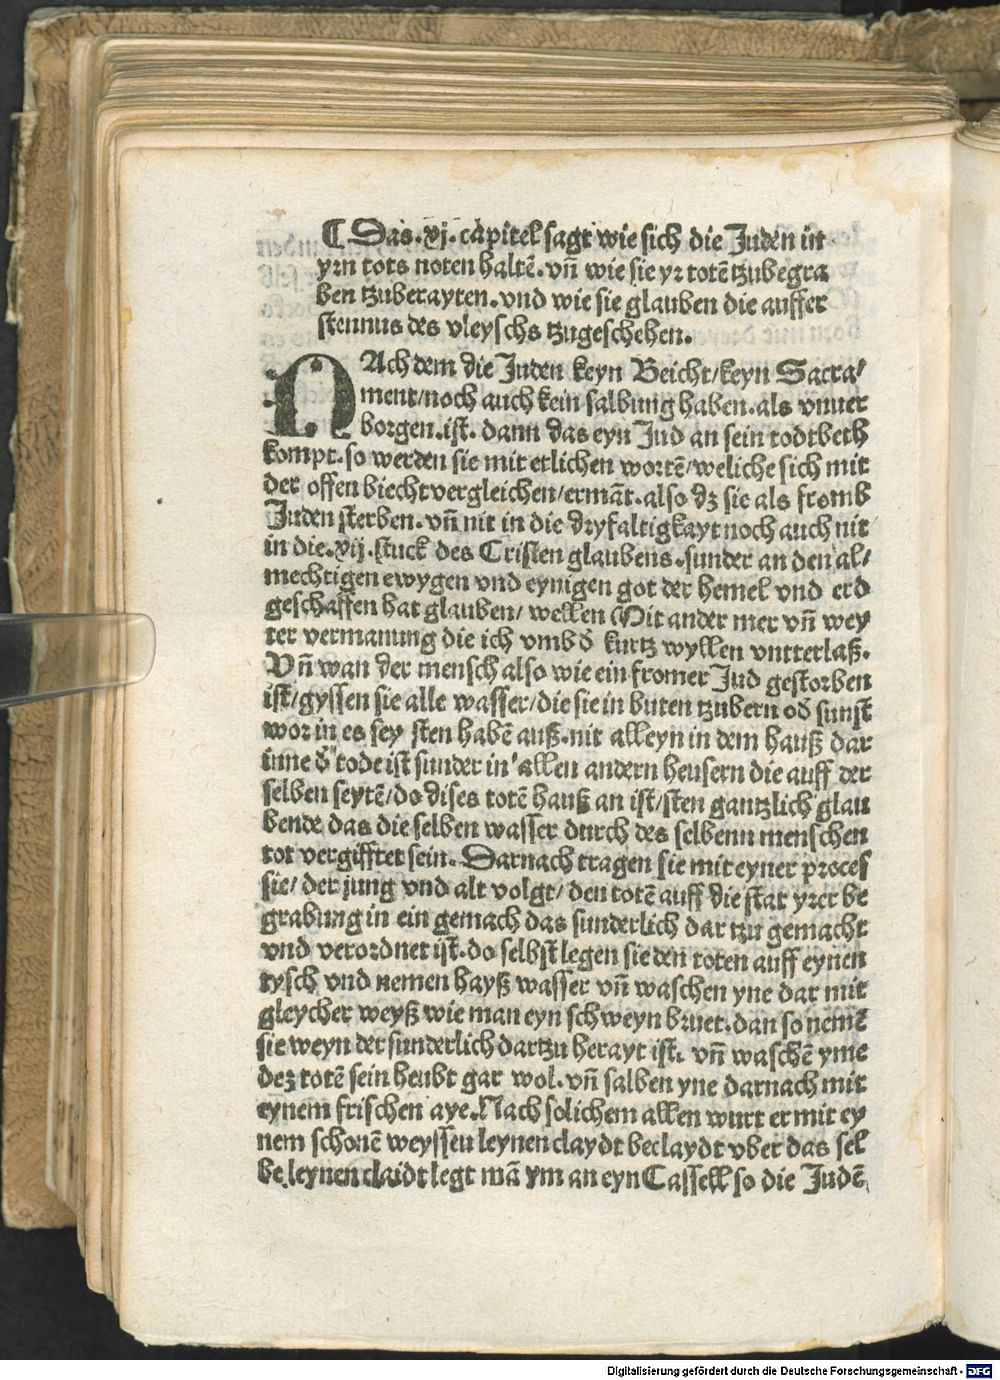 ¶ Das.xj.capitel sagt wie sich die Juden in
yrn tots noten haltē.vn̄ wie sie yr totē tzubegra
ben tzuberayten.vnd wie sie glauben die auffer
stennus des vleyschs tzugeschehen.
NAch dem die Juden keyn Beicht/keyn Sacra/
ment/noch auch kein salbung haben.als vnuer
borgen.ist.dann das eyn Jud an sein todtbeth
kompt.so werden sie mit etlichen wortē/weliche sich mit
der offen biecht vergleichen/ermāt.also dz sie als fromb
Juden sterben.vn̄ nit in die dryfaltigkayt noch auch nit
in die.xij.stuck des Cristen glaubens.sunder an den al/
mechtigen ewygen vnd eynigen got der hemel vnd erd
geschaffen hat glauben/wellen Mit ander mer vn̄ wey
ter vermanung die ich vmb d̄ kurtz wyllen vntterlaß.
Vn̄ wan der mensch also wie ein fromer Jud gestorben
ist/gyssen sie alle wasser/die sie in buten tzubern od̄ sunst
wor in es sey sten habē auß.nit alleyn in dem hauß dar
inne d̄ tode ist sunder in allen andern heusern die auff der
selben seytē/do dises totē hauß an ist/sten gantzlich glau
bende das die selben wasser durch des selbenn menschen
tot vergifftet sein.Darnach tragen sie mit eyner proces
sie/der jung vnd alt volgt/den totē auff die stat yrer be
grabung in ein gemach das sunderlich dar tzu gemacht
vnd verordnet ist.do selbst legen sie den toten auff eynen
tysch vnd nemen hayß wasser vn̄ waschen yne dar mit
gleycher weyß wie man eyn schweyn bruet.dan so nemē
sie weyn der sunderlich dartzu berayt ist.vn̄ waschē yme
dez totē sein heubt gar wol.vn̄ salben yne darnach mit
eynem frischen aye.Nach solichem allen wurt er mit ey
nem schonē weyssen leynen claydt beclaydt vber das sel
be leynen claidt legt mā ym an eyn Cassell so die Judē
Digitalisierung gefördert durch die Deutsche Forschungsgemeinschaft - DFG